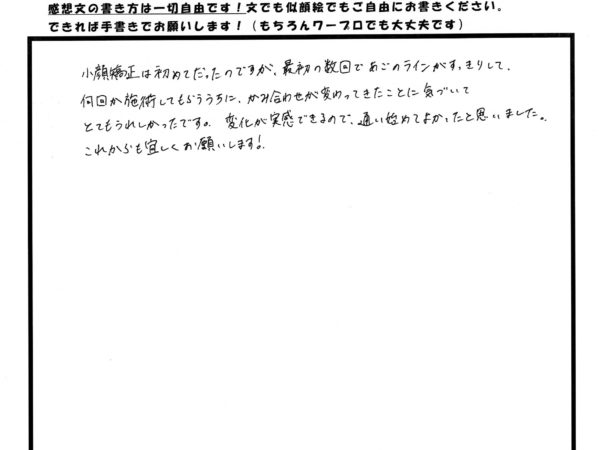 感想文の書き方は一切自由です！文でも似顔絵でもご自由にお書きください。
できれば手書きでお願いします！（もちろんワープロでも大丈夫です）
小顔矯正は初めてだったのですが、最初の数回であごのラインがすっきりして、
何回か施術してもらううちに、かみ合わせが変わってきたことに気づいて
とてもうれしかったです。変化が実感できるので、通い始めてよかったと思いました。
これからも宜しくお願いします！